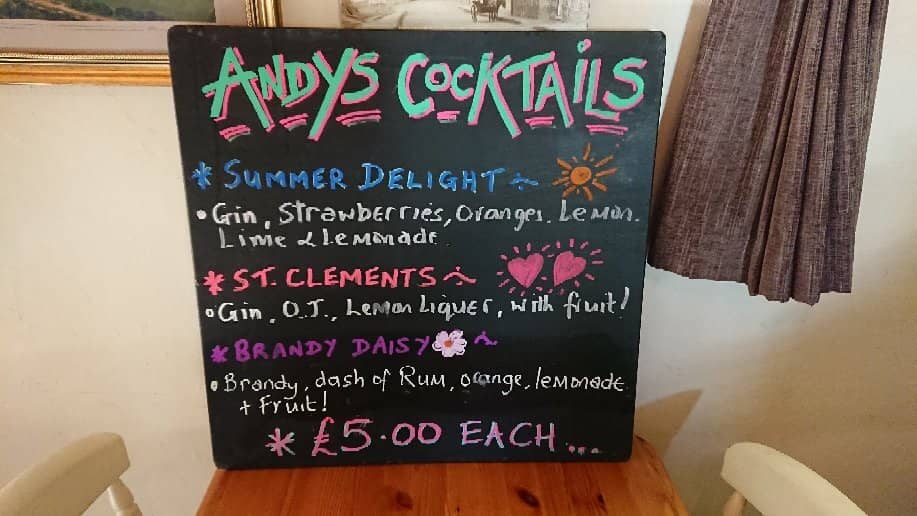 ANDYS COCKTAILS
* SUMMER DELIGHT ~
• Gin, Strawberries, Oranges. Lemon.
Lime & Lemonade.
* ST. CLEMENTS ~
• Gin, O.J., Lemon Liquer, with fruit!
* BRANDY DAISY ~
• Brandy, dash of Rum, orange, lemonade
+ Fruit!
* £5.00 EACH...